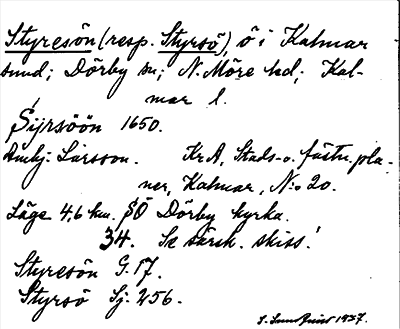 Styresön (resp. Styrsö), ö i Kalmar
sund; Dörby sn; N. Möre hd; Kal-
mar l.
Sijrsöön 1650.
Ambj. Larsson. Kr A, Stads- o. fästn. pla-
ner, Kalmar, N:o 20.
Läge 4,6 km. SÖ Dörby kyrka.
34. Se särsk. skiss!
Styresön G. 17.
Styrsö Sj. 256.
1937.